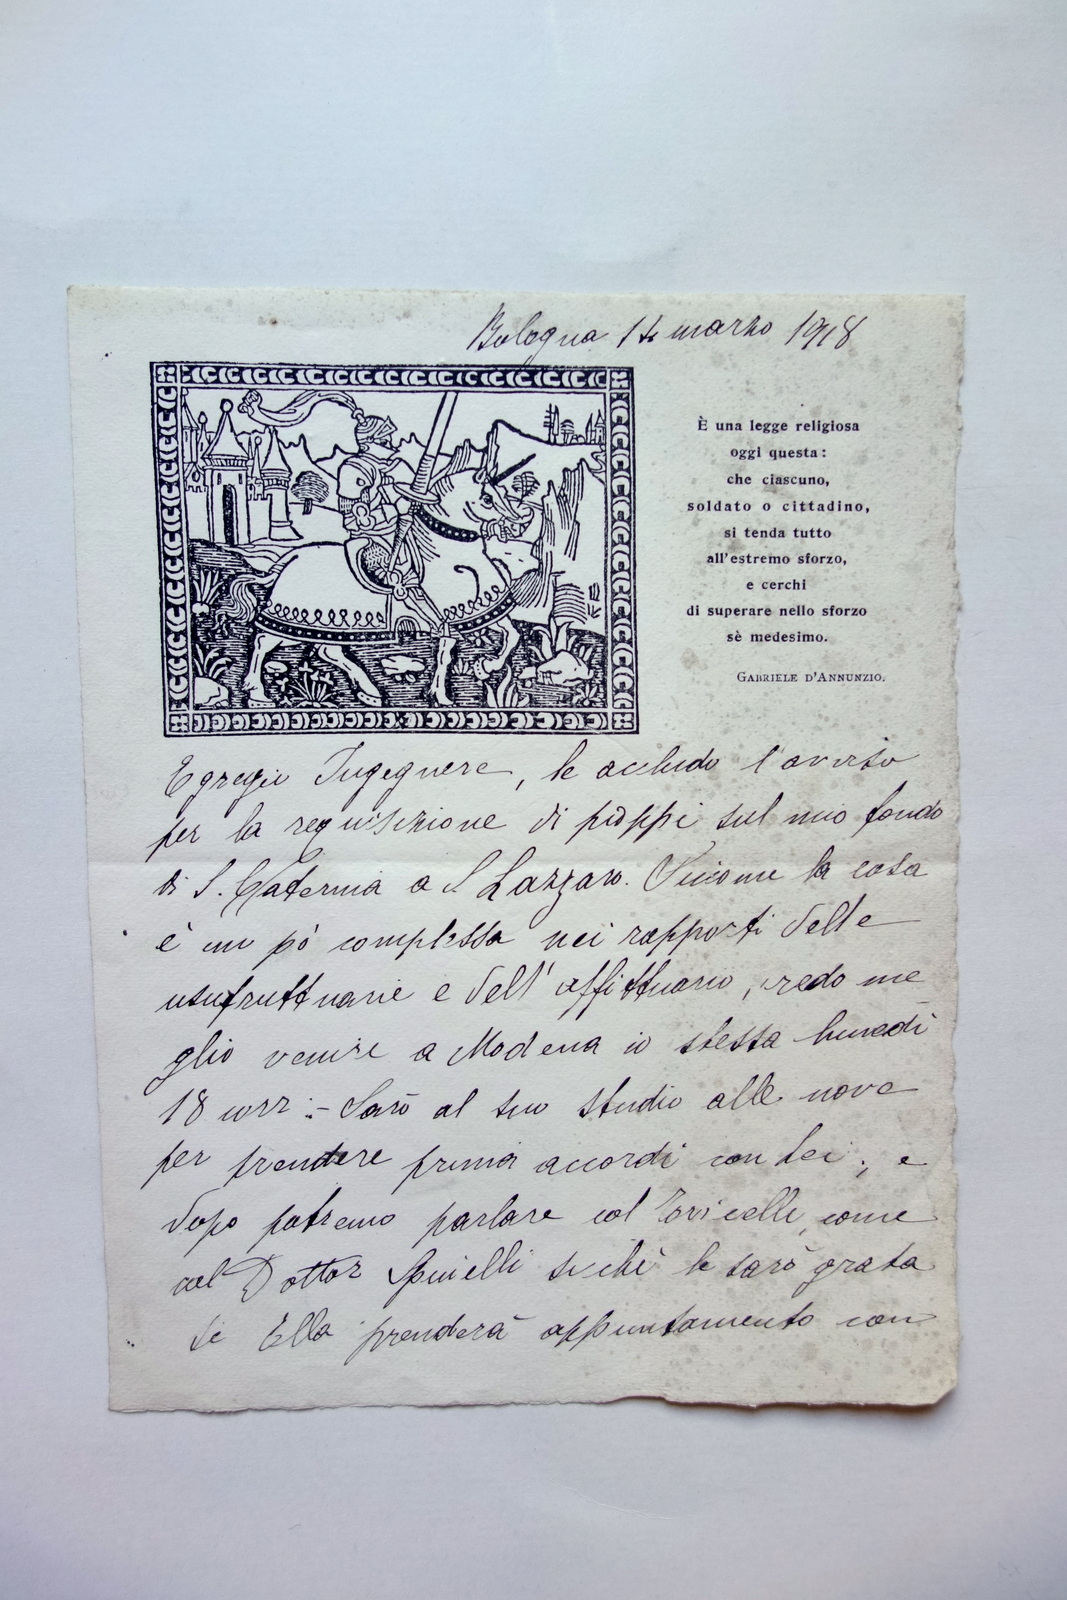 Bologna 14 marzo 1918
È una legge religiosa
oggi questa:
che ciascuno,
soldato o cittadino,
si tenda tutto
all'estremo sforzo,
e cerchi
di superare nello sforzo
sè medesimo.
Gabriele d'Annunzio.
Egregio Ingegnere, le accludo l'avviso
per la requisizione di pioppi sul mio fondo
di S. Caterina a S Lazzaro. Siccome la cosa
è un pò complessa nei rapporti delle
usufruttuarie e dell'affittuario, credo me
glio venire a Modena io stessa lunedì
18 corr :- Sarò al suo studio alle nove
per prendere prima accordi con Lei; e
dopo potremo parlare col come
col Dottor Spinelli sichè le sarò grata
se Ella prenderà appuntamento con